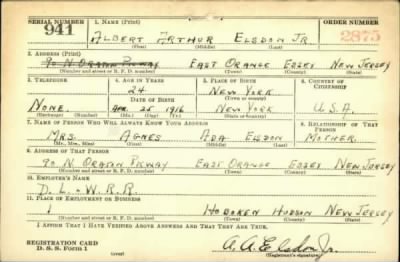 SERIAL NUMBER 1. NAME (Print) ORDER NUMBER
941 ALBERT ARTHUR ELSDON JR. 2875
(First) (Middle) (Last)
2. ADDRESS (Print)
90 N. ORATON PKWAY EAST ORANGE ESSEX NEW JERSEY
(Number and street or R. F. D. number) (Town) (County) (State)
3. TELEPHONE 4. AGE IN YEARS 5. PLACE OF BIRTH 6. COUNTRY OF CITIZENSHIP
24 NEW YORK
DATE OF BIRTH (Town or county)
NONE. APR. 25 1916 NEW YORK U.S.A.
(Exchange) (Number) (Mo.) (Day) (Yr.) (State or country)
7. NAME OF PERSON WHO WILL ALWAYS KNOW YOUR ADDRESS 8. RELATIONSHIP OF THAT PERSON
MRS. AGNES ADA ELSDON MOTHER.
(Mr., Mrs., Miss) (First) (Middle) (Last)
9. ADDRESS OF THAT PERSON
90 N. ORATON PKWAY EAST ORANGE ESSEX NEW JERSEY
(Number and street or R. F. D. number) (Town) (County) (State)
10. EMPLOYER'S NAME
D. L. - W. R.R.
11. PLACE OF EMPLOYMENT OR BUSINESS
HOBOKEN HUDSON NEW JERSEY
(Number and street or R. F. D. number) (Town) (County) (State)
I AFFIRM THAT I HAVE VERIFIED ABOVE ANSWERS AND THAT THEY ARE TRUE.
REGISTRATION CARD
D. S. S. Form 1 (over) A. A. Elsdon Jr.
(Registrant's signature)